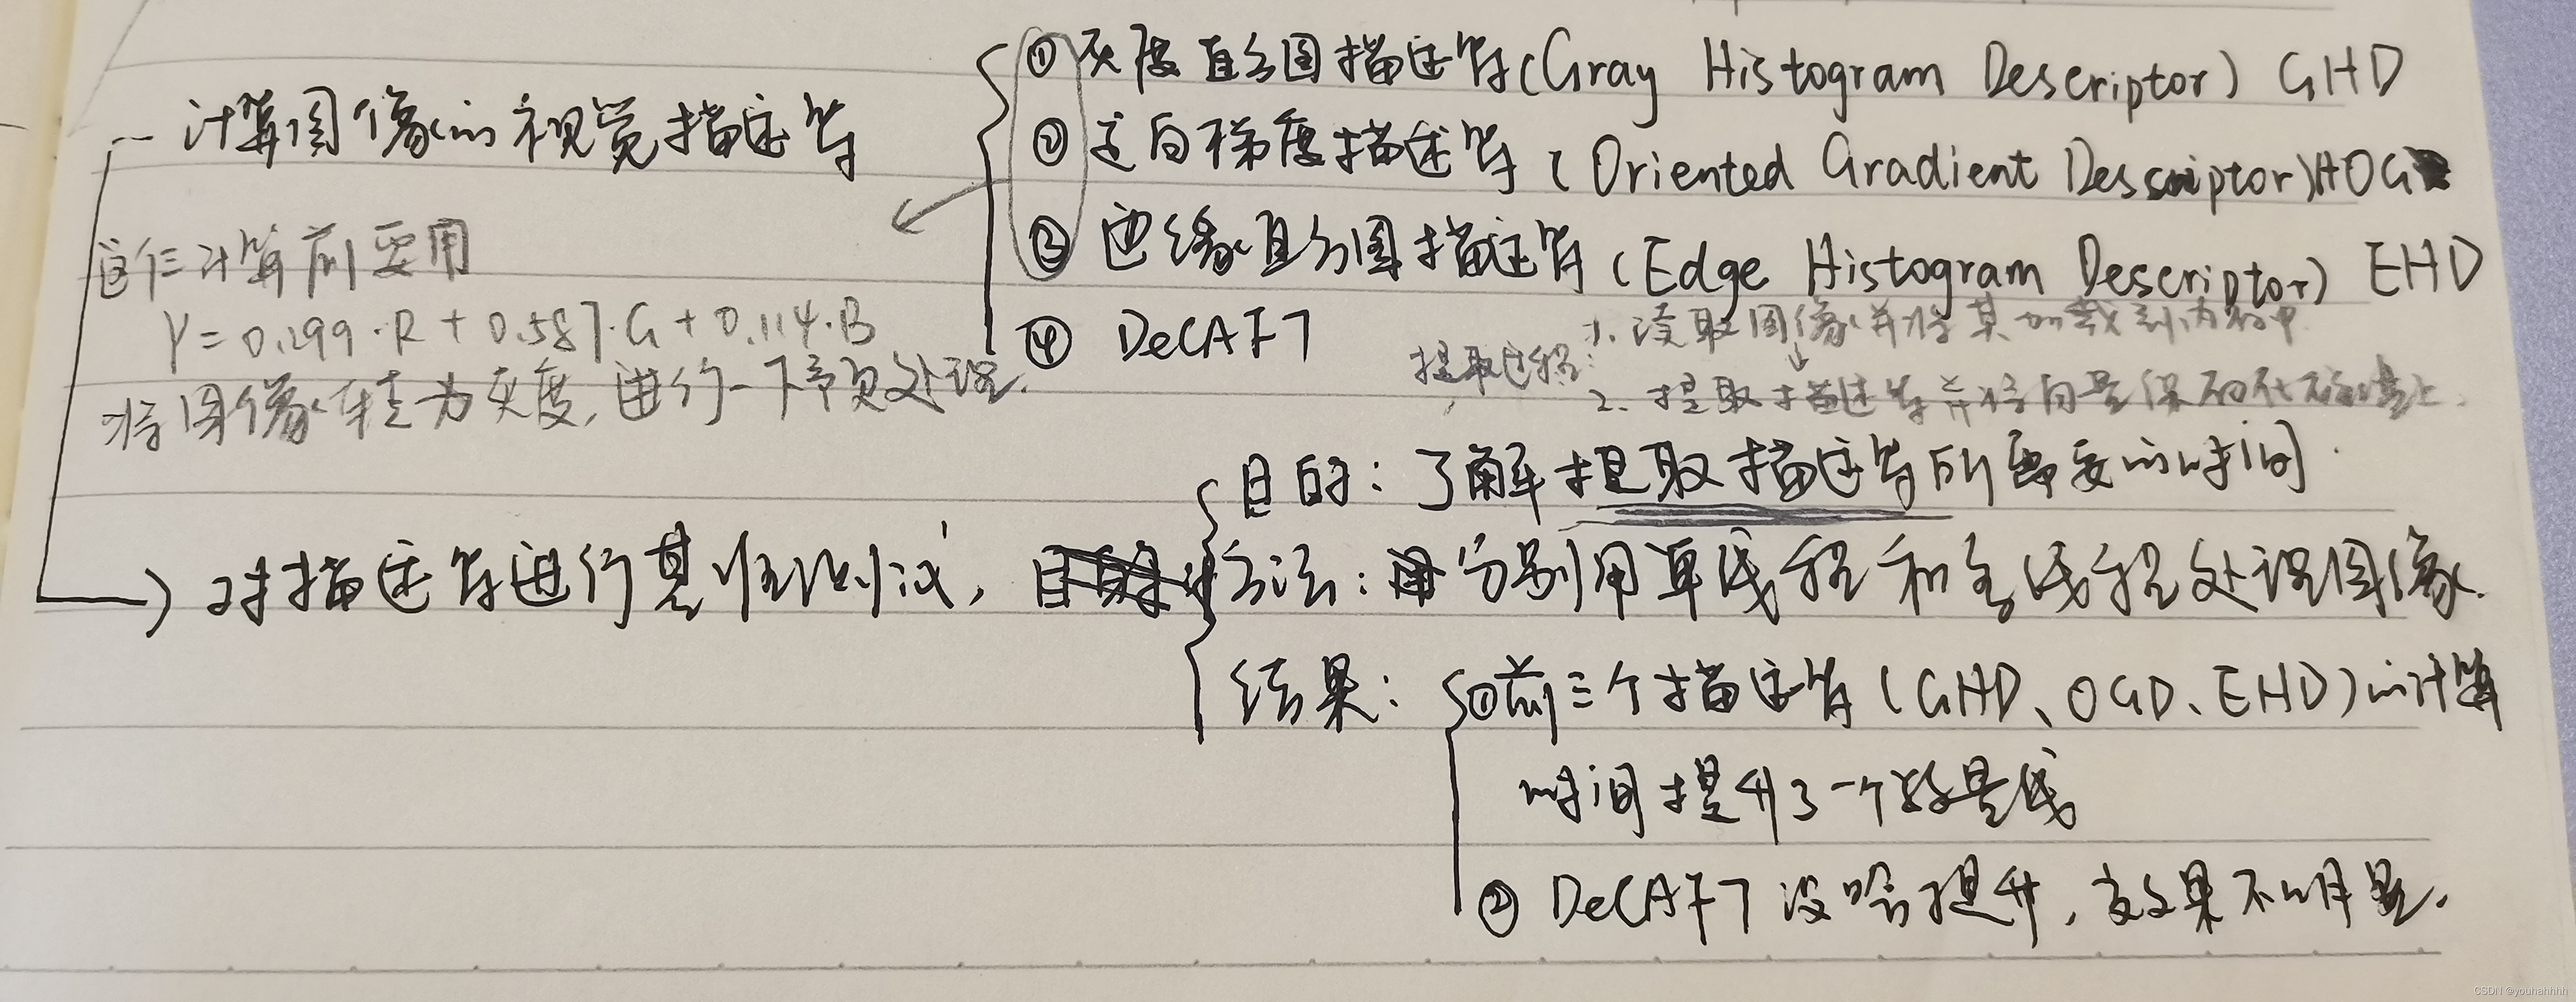 ① 灰度直方图描述符(Gray Histogram Descriptor) GHD
计算图像的视觉描述符
② 定向梯度描述符 (Oriented Gradient Descriptor) HOG
③ 边缘直方图描述符 (Edge Histogram Descriptor) EHD
④ DeCAF7
这仨计算前要用
Y=0.299·R+0.587·G+0.114·B
将图像转为灰度,进行一下预处理.
提取过程:
1. 读取图像并将其加载到内存中
2. 提取描述符并将向量保存在
目的: 了解提取描述符所需要的时间.
对描述符进行基准测试,
方法: 分别用单线程和多线程处理图像.
结果: ①前三个描述符(GHD、OGD、EHD)的计算
时间提升了一个数量级
② DeCAF7 没啥提升,效果不明显.
CSDN @youhahhhh